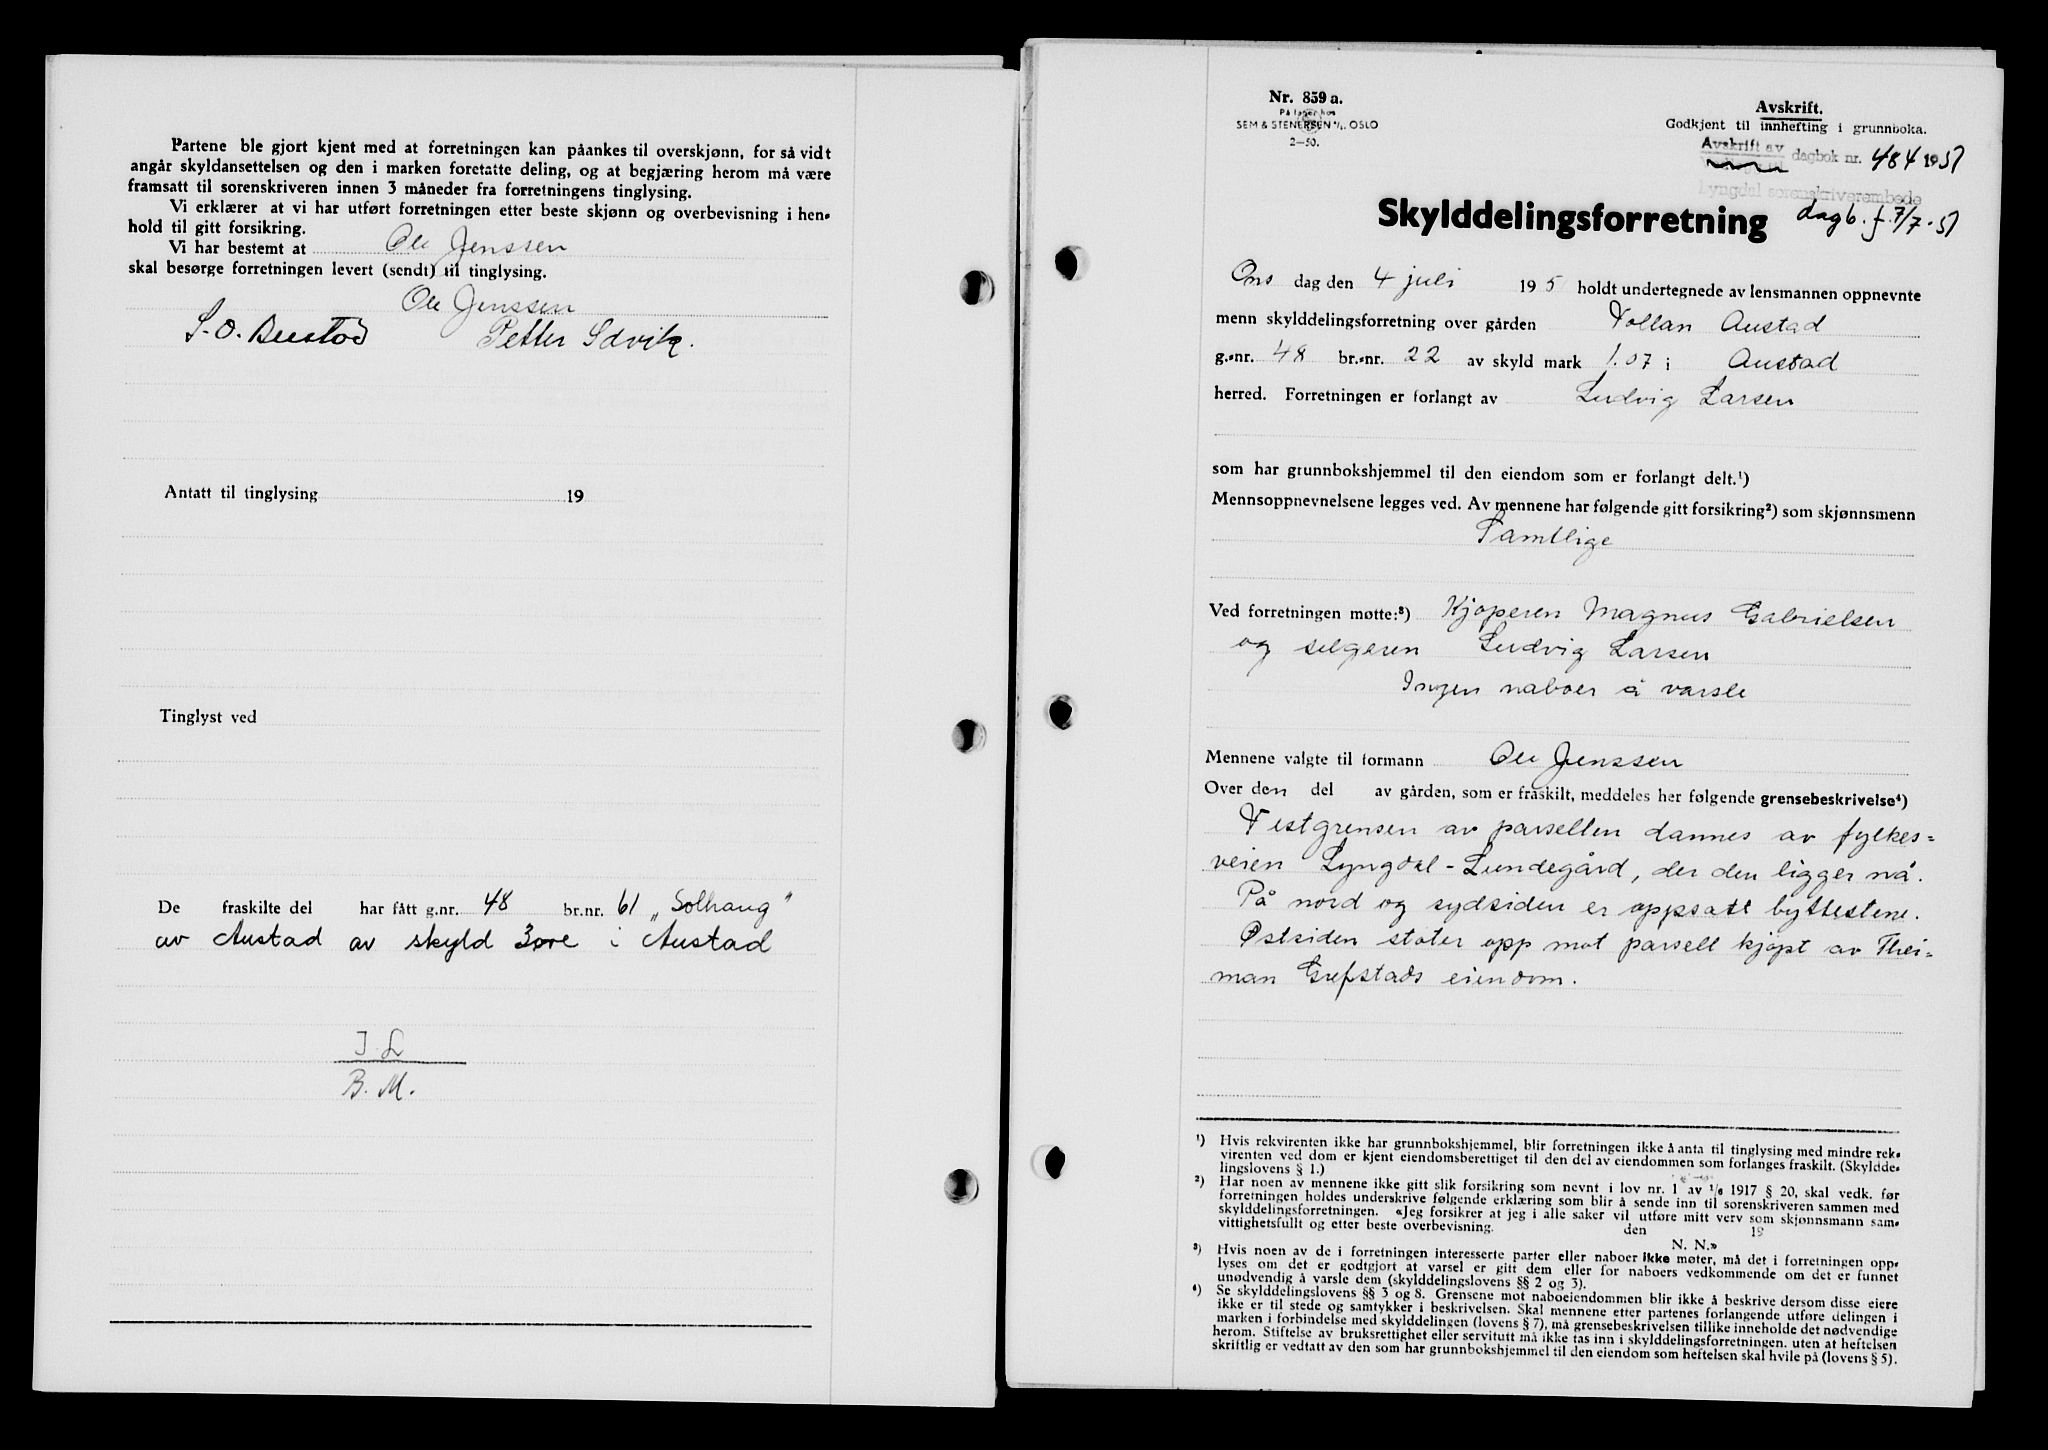 Partene ble gjort kjent med at forretningen kan påankes til overskjønn, for så vidt
angår skyldansettelsen og den i marken foretatte deling, og at begjæring herom må være
framsatt til sorenskriveren innen 3 måneder fra forretningens tinglysing.
Vi erklærer at vi har utført forretningen etter beste skjønn og overbevisning i hen-
hold til gitt forsikring.
Vi har bestemt at Ole Jenssen
skal besørge forretningen levert (sendt) til tinglysing.
Ole Jenssen
S. O. Austad Petter Idvik.
Antatt til tinglysing 19
Tinglyst ved
De fraskilte del har fått g.nr. 48 br.nr. 61 „Solhaug"
av Austad av skyld 3 øre i Austad
J. L
B. M.
Nr. 859 a.
På lager hos
SEM & STENERSEN A/S. OSLO
2-50.
Avskrift.
Godkjent til innhefting i grunnboka.
Avskrift av dagbok nr. 484 1951
Lyngdal sorenskriverembede
Skylddelingsforretning dagb. f. 7/7-51
Ons dag den 4 juli 195 holdt undertegnede av lensmannen oppnevnte
menn skylddelingsforretning over gården Vollan Austad
g.-nr. 48 br.-nr. 22 av skyld mark 1.07 i Austad
herred. Forretningen er forlangt av Ludvig Larsen
som har grunnbokshjemmel til den eiendom som er forlangt delt.¹)
Mennsoppnevnelsene legges ved. Av mennene har følgende gitt forsikring²) som skjønnsmenn
Samtlige
Ved forretningen møtte:³) Kjøperen Magnus Gabrielsen
og selgeren Ludvig Larsen
Ingen naboer å varsle
Mennene valgte til formann Ole Jenssen
Over den del av gården, som er fraskilt, meddeles her følgende grensebeskrivelse⁴)
Vestgrensen av parsellen dannes av fylkes=
veien Lyngdal - Lundegård, der den ligger nå.
På nord og sydsiden er oppsatt byttestene.
Østsiden støter opp mot parsell kjøpt av Thei=
man Grefstads eiendom.
¹) Hvis rekvirenten ikke har grunnbokshjemmel, blir forretningen ikke å anta til tinglysing med mindre rek-
virenten ved dom er kjent eiendomsberettiget til den del av eiendommen som forlanges fraskilt. (Skyldde-
lingslovens § 1.)
²) Har noen av mennene ikke gitt slik forsikring som nevnt i lov nr. 1 av 1/6 1917 § 20, skal vedk. før
forretningen holdes underskrive følgende erklæring som blir å sende inn til sorenskriveren sammen med
skylddelingsforretningen. «Jeg forsikrer at jeg i alle saker vil utføre mitt verv som skjønnsmann sam-
vittighetsfullt og etter beste overbevisning. den 19
N. N.»
³) Hvis noen av de i forretningen interesserte parter eller naboer ikke møter, må det i forretningen opp-
lyses om det er godtgjort at varsel er gitt dem eller for naboers vedkommende om det er funnet
unødvendig å varsle dem (skylddelingslovens §§ 2 og 3).
⁴) Se skylddelingslovens §§ 3 og 8. Grensene mot naboeiendommen blir ikke å beskrive dersom disse eiere
ikke er til stede og samtykker i beskrivelsen. Skal mennene etter partenes forlangende utføre delingen i
marken i forbindelse med skylddelingen (lovens § 7), må grensebeskrivelsen tillike inneholde det nødvendige
herom. Stiftelse av bruksrettighet eller servitutt må ikke tas inn i skylddelingsforretningen, uten at heftelsen
skriftlig er vedtatt av den som har grunnbokshjemmel til den eiendom som heftelsen skal hvile på (lovens § 5).